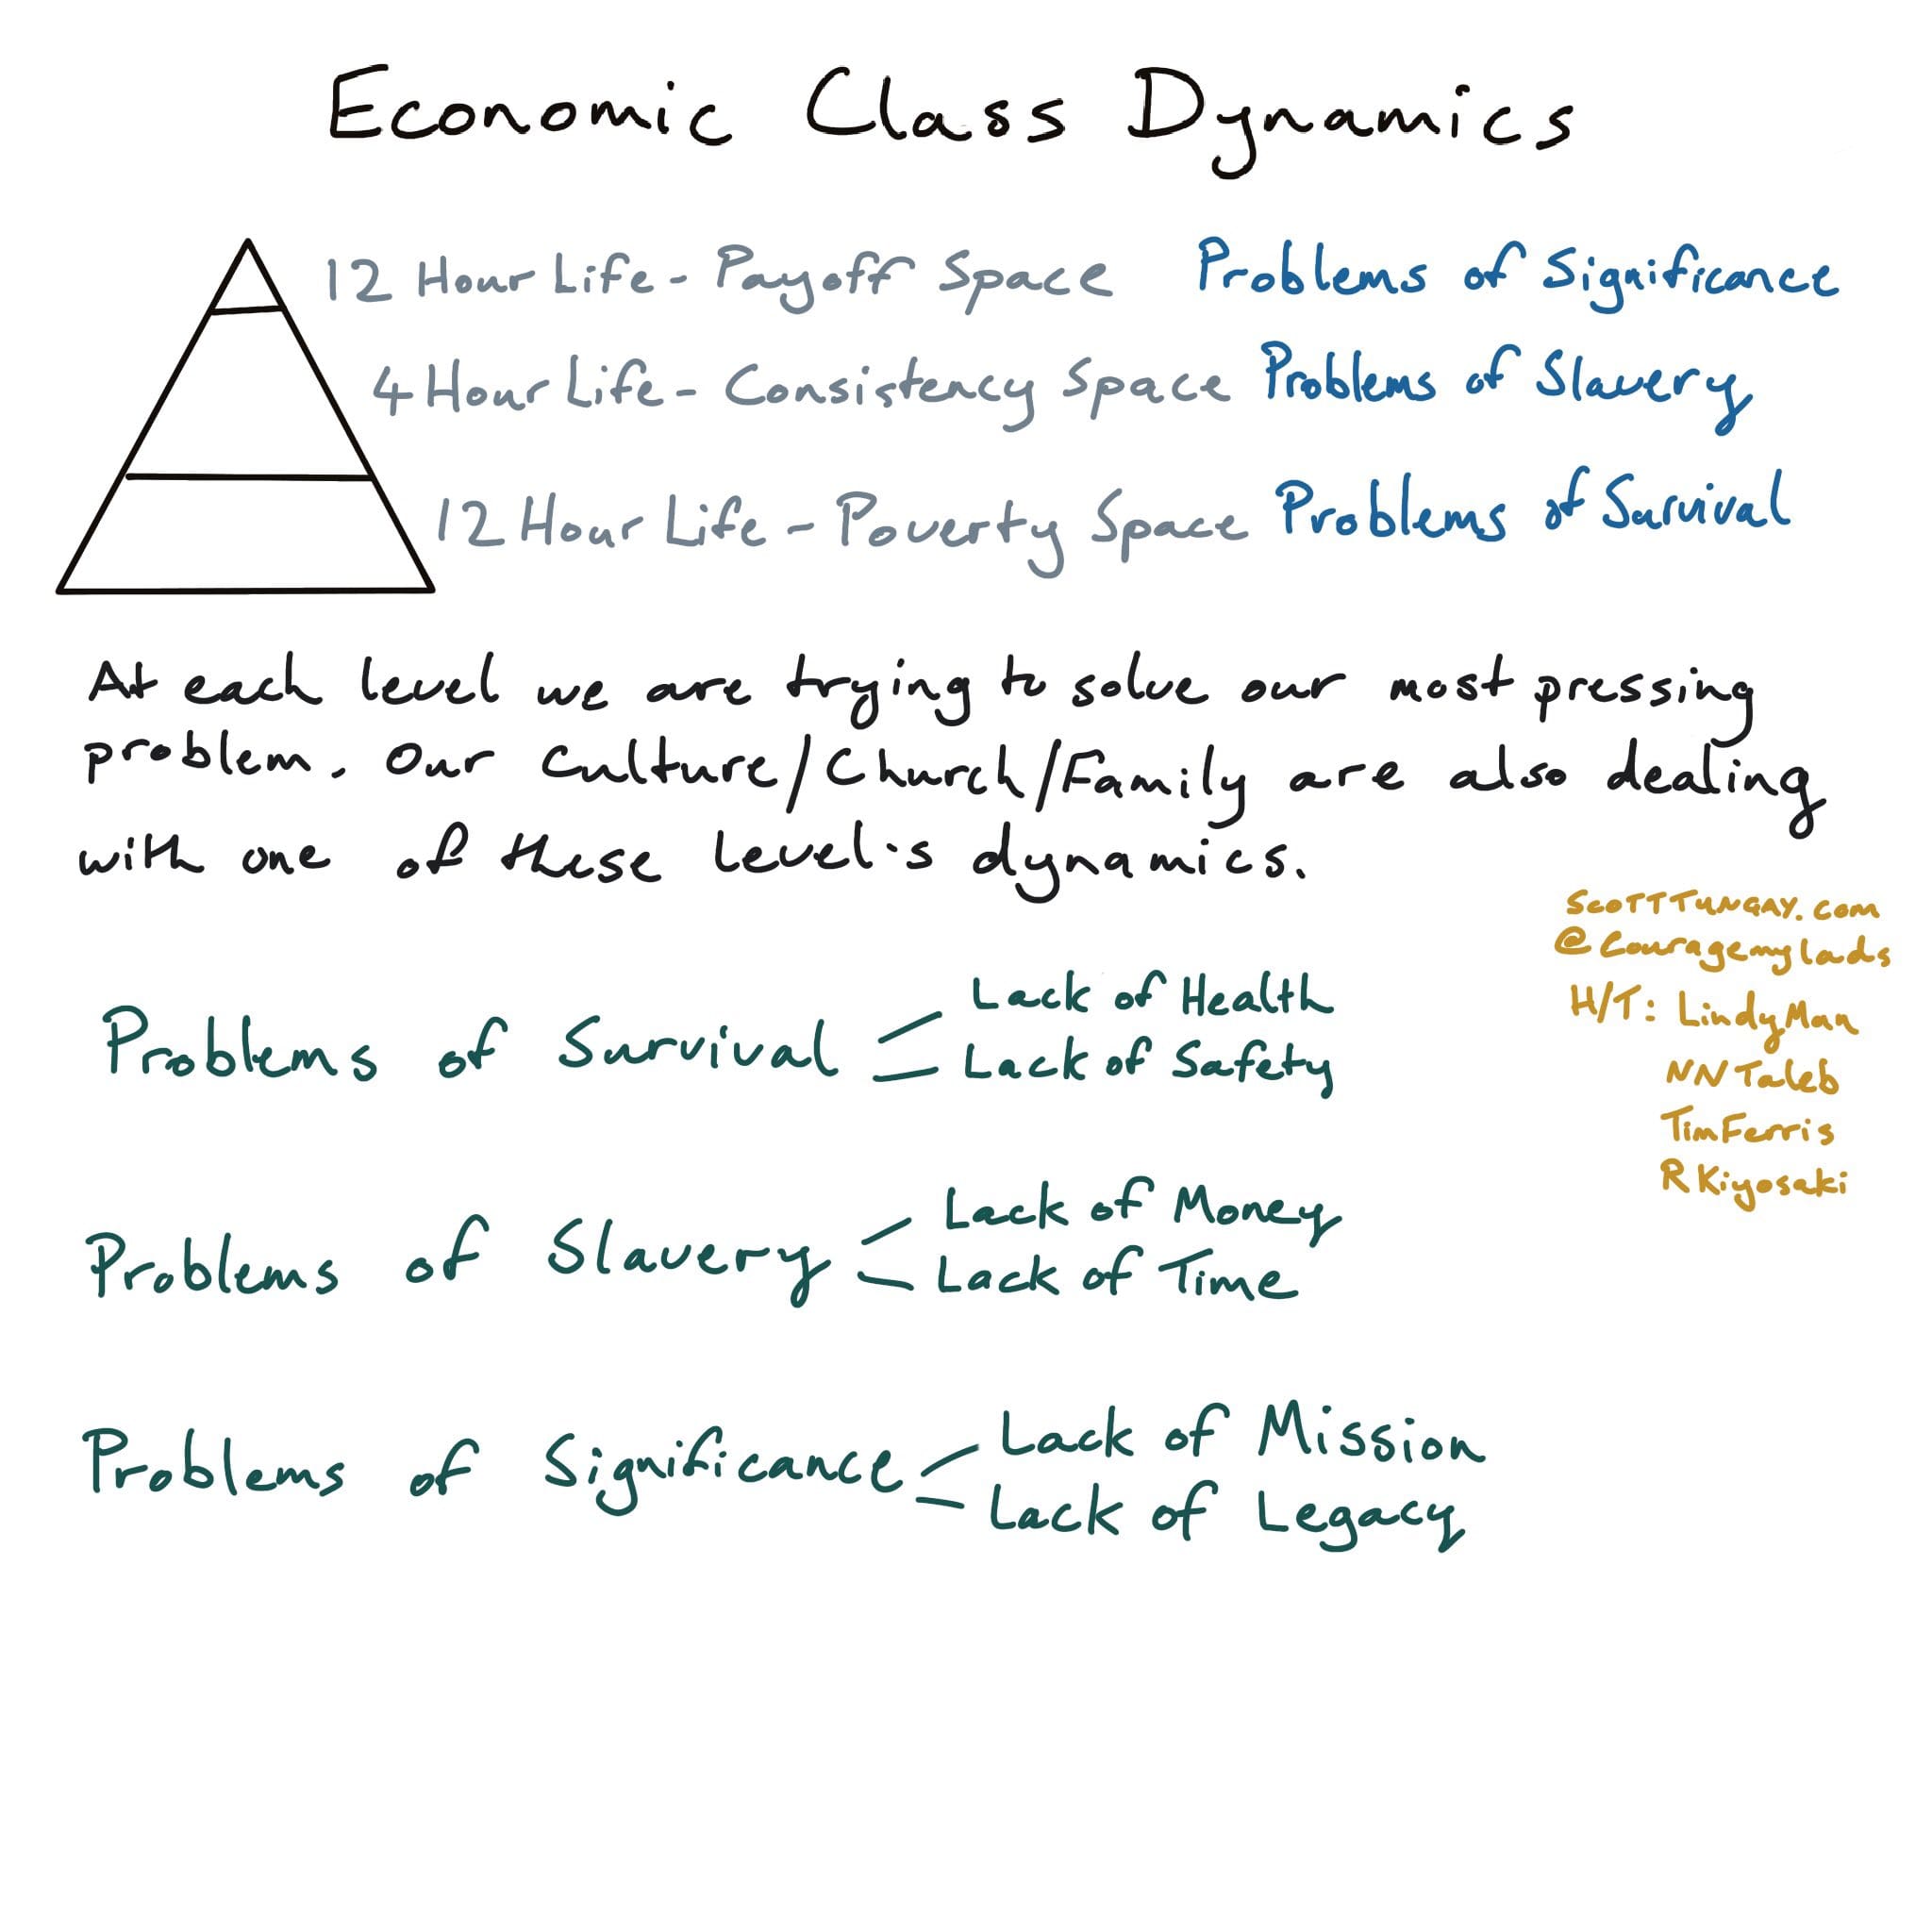 Economic Class Dynamics
12 Hour Life - Payoff Space Problems of Significance
4 Hour Life - Consistency Space Problems of Slavery
12 Hour Life - Poverty Space Problems of Survival
At each level we are trying to solve our most pressing
problem. Our Culture/Church/Family are also dealing
with one of these level's dynamics.
ScottTungay.com
@Couragemylads
H/T: LindyMan
NN Taleb
Tim Ferris
R Kiyosaki
Problems of Survival
Lack of Health
Lack of Safety
Problems of Slavery
Lack of Money
Lack of Time
Problems of Significance
Lack of Mission
Lack of Legacy